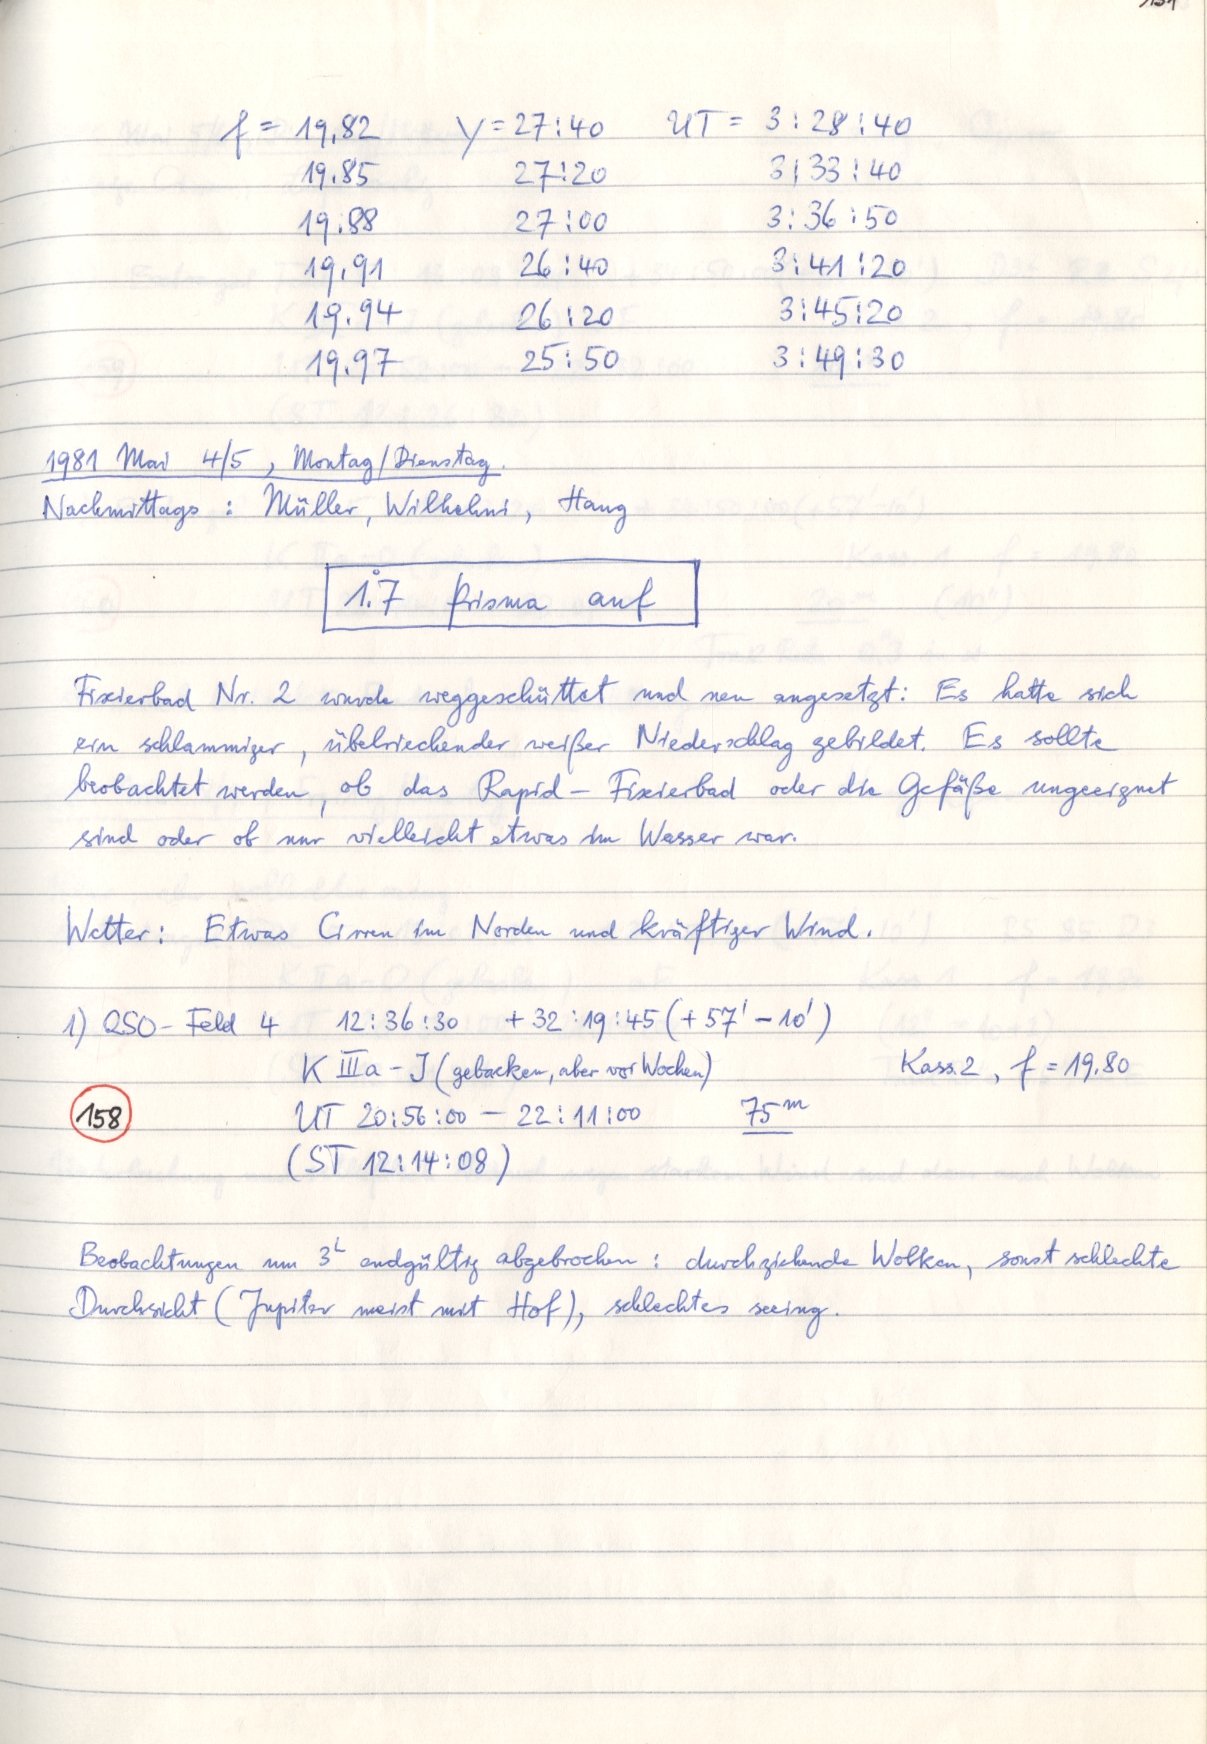 f = 19.82 y = 27:40 UT = 3:28:40
19.85 27:20 3:33:40
19.88 27:00 3:36:50
19.91 26:40 3:41:20
19.94 26:20 3:45:20
19.97 25:50 3:49:30
1981 Mai 4/5, Montag/Dienstag.
Nachmittags: Müller, Wilhelmi, Haug
1°.7 Prisma auf
Fixierbad Nr. 2 wurde weggeschüttet und neu angesetzt: Es hatte sich
ein schlammiger, übelriechender weißer Niederschlag gebildet. Es sollte
beobachtet werden, ob das Rapid-Fixierbad oder die Gefäße ungeeignet
sind oder ob nur vielleicht etwas im Wasser war.
Wetter: Etwas Cirren im Norden und kräftiger Wind.
1) QSO-Feld 4 12:36:30 +32:19:45 (+57' -10')
K IIIa-J (gebacken, aber vor Wochen) Kass.2, f = 19.80
158 UT 20:56:00 - 22:11:00 75m
(ST 12:14:08)
Beobachtungen um 3h endgültig abgebrochen: durchziehende Wolken, sonst schlechte
Durchsicht (Jupiter meist mit Hof), schlechtes seeing.